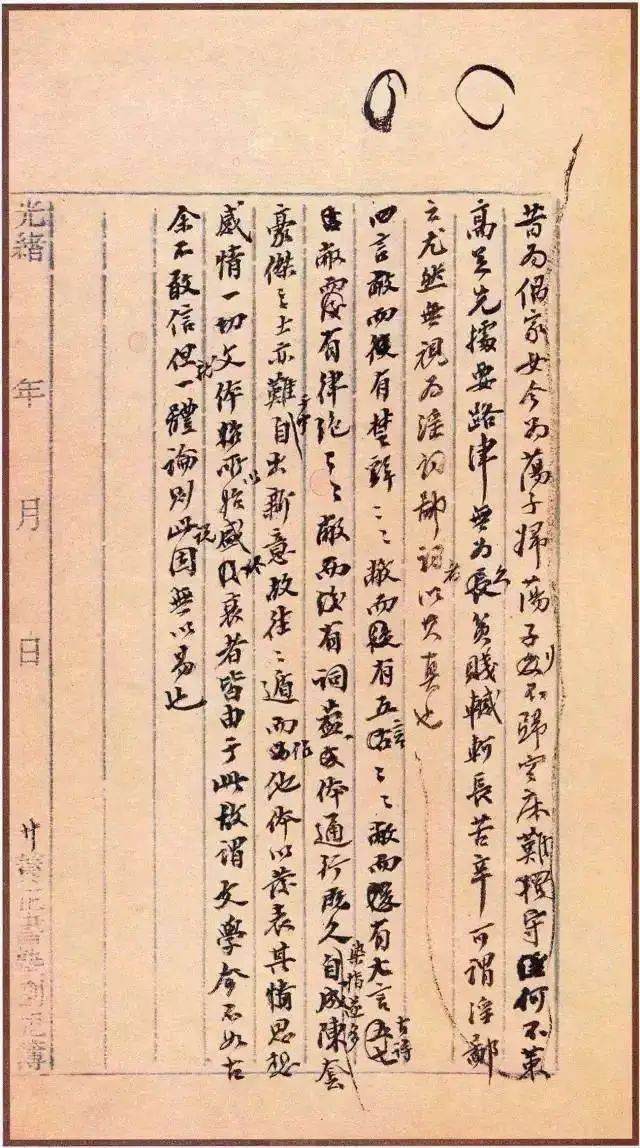 昔为倡家女今为蕩子婦蕩子行不歸空床難獨守何不策
高足先據要路津無为久貧賤轗軻長苦辛可謂淫鄙
之尤然無視为淫詞鄙詞者以其真也
四言敝而後有楚辭〻〻敝而後有五言〻〻敝而後有七言古詩
古詩敝而後有律絶〻〻敝而後有詞蓋文体通行既久染指遂多自成陳套
豪傑之士亦難于中自出新意故往〻遁而作他体以發表其思想
感情一切文体所以始盛終衰者皆由于此故謂文學今不如古
余不敢信但就一體論則此説固無以易也
光緒 年 月 日